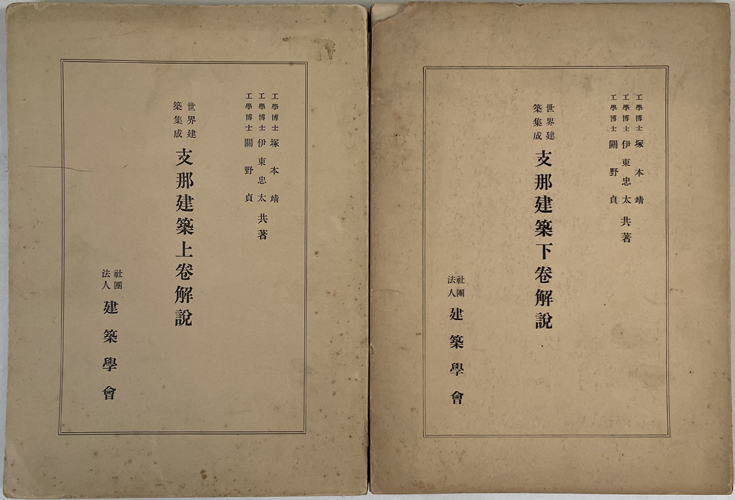 工學博士 塚本靖
工學博士 伊東忠太 共著
工學博士 關野貞
世界建築集成 支那建築上卷解說
社團法人 建築學會
工學博士 塚本靖
工學博士 伊東忠太 共著
工學博士 關野貞
世界建築集成 支那建築下卷解說
社團法人 建築學會